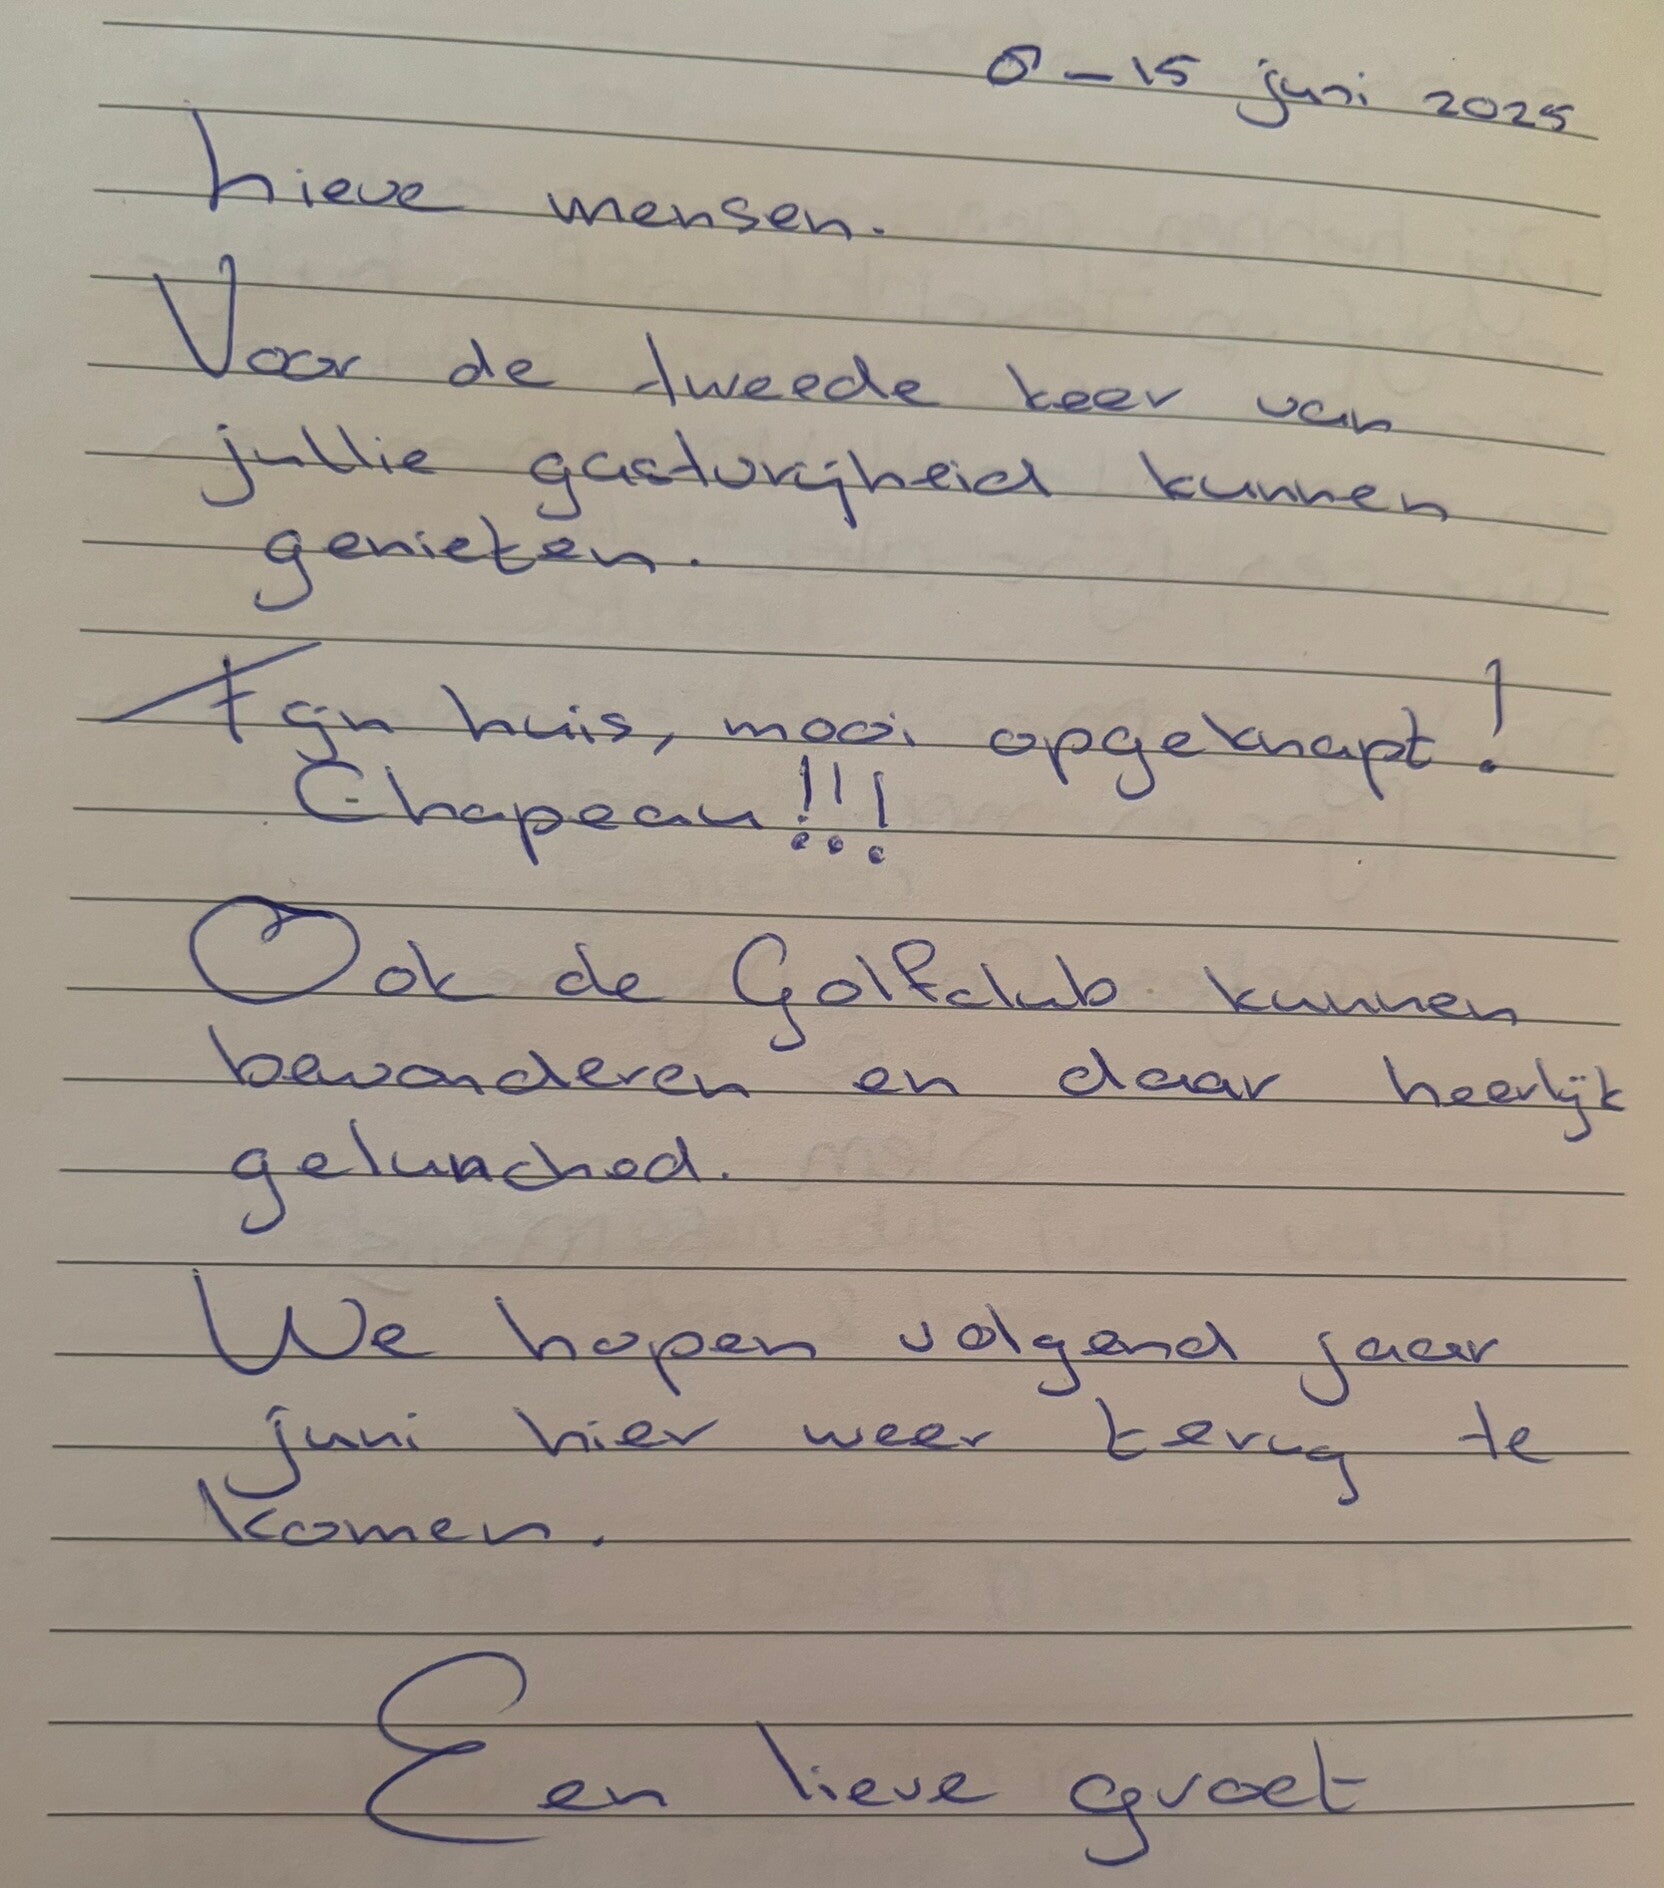 8 - 15 juni 2025
Lieve mensen.
Voor de tweede keer van
jullie gastvrijheid kunnen
genieten.
Fijn huis, mooi opgeknapt!
Chapeau!!!
Ook de Golfclub kunnen
bewonderen en daar heerlijk
gelunched.
We hopen volgend jaar
juni hier weer terug te
komen.
Een lieve groet